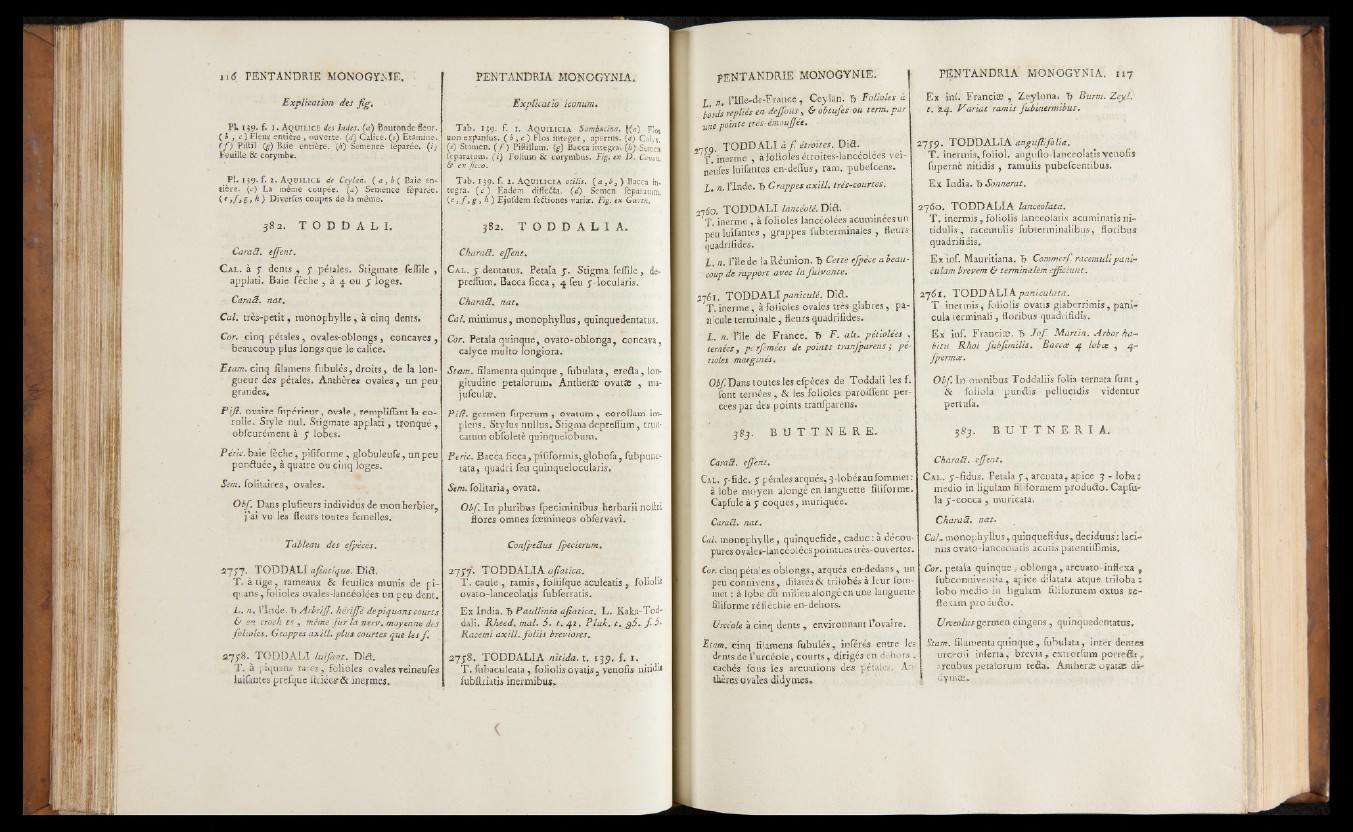 116 PENTANDRIE MONOGYNIE.
Explication des fig.
Pl. 139. f. 1. AQUILICE des Indes. (a) Boutons de fleur.
( b , c ) Fleur entière, ouverte. (d) Calice. (e) Etamine.
(f) Pistil (g) Baie entière. (h) Semence séparée. (i)
Feuille & corymbe.
Pl. 139. f. 2. AQUILICE de Ceylan. ( a , b ( Baie en-
tière. (c) La même coupée. (d) Semence séparée.
( e , f , g , h ) Diverses coupes de la même.
382. TODDALI.
Caract. essent.
CAL. à 5 dents , 5 pétales. Stigmate sessile ,
applati. Baie sèche , à 4 ou 5 loges.
Caract. nat.
Cal. très-petit , monophylle , à cinq dents.
Cor. cinq pétales , ovales-oblongs , concaves ,
beaucoup plus longs que le calice.
Etam. cinq filamens subulés, droits, de la lon-
gueur des pétales. Anthères ovales, un peu
grandes.
Pist. ovaire supérieur, ovale, remplissant la co-
rolle. Style nul. Stigmate applati , tronqué ,
obscurément à 5 lobes.
Péric. baie sèche, pisiforme , globuleuse, un peu
ponctuée, à quatre ou cinq loges.
Sem. solitaires, ovales.
Obs. Dans plusieurs individus de mon herbier,
j'ai vu les fleurs toutes femelles.
Tableau des espèces.
2757. TODDALI asiatique. Dict.
T. à tige, rameaux & feuilles munis de pi-
quans, folioles ovales-lancéolées un peu dent.
L. n. l'Inde. ♄ Arbriss. hérissé de piquans courts
& en croch. ts , même sur la nerv. moyenne des
folioles. Grappes axill. plus courtes que les f.
2758. TODDALI luisant. Dict.
T. à piquans rares, folioles ovales veineuses
luisantes presque striées & inermes.
PENTANDRIA MONOGYNIA.
Explicatio iconum.
Tab. 139. f. 1. AQUILICIA Sambucina. (a) Flos
non expansus. ( b , c ) Flos integer , apertus. (d) Calyx.
(e) Stamen. ( f ) Pistillum. (g) Bacca integra. (h) Semen
separatum. ( i ) Folium & corymbus. Fig. ex D. Cavan.
& ex sicco.
Tab. 139. f. 2. AQUILICIA otilis. ( a , b , ) Bacca in-
tegra. ( c ) Eadem dissecta. (d) Semen separatum.
( e , f , g , h ) Ejusdem sectiones variæ. Fig. ex Gærtn.
382. TODDALIA.
Charact. essent.
CAL. 5 dentatus. Petala 5. Stigma sessile , de-
pressum. Bacca sicca , 4 seu 5-locularis.
Charact. nat.
Cal. minimus, monophyllus, quinquedentatus.
Cor. Petala quinque, ovato-oblonga, concava,
calyce multo longiora.
Stam. filamenta quinque , subulata, erecta, lon-
gitudine petalorum. Antheræ ovatæ , ma-
jusculæ.
Pist. germen superum , ovatum , corollam im-
plens. Stylus nullus. Stigma depressum, trun-
catum obsoletè quinquelobum.
Peric. Bacca sicca, pisiformis, globosa, subpunc-
tata, quadri seu quinquelocularis.
Sem. solitaria, ovata.
Obs. In pluribus speciminibus herbarii nostri
flores omnes fœmineos observavi.
Conspectus specierum.
2757. TODDALIA asiatica.
T. caule , ramis, foliisque aculeatis , foliolis
ovato-lanceolatis subserratis.
Ex India. ♄ Paullinia asiatica. L. Kaka-Tod-
dali. Rheed. mal. 5. t. 41. Pluk. t. 95. f. 5.
Racemi axill. foliis breviores.
2758. TODDALIA nitida. t. 139. f. 1.
T. subaculeata , foliolis ovatis , venosis nitidis
substriatis inermibus.
PENTANDRIE MONOGYNIE.
L. n. l'Isle-de-France , Ceylan. ♄ Folioles à
bords repliés en dessous , & obtuses ou term. par
une pointe très-émoussée.
2759. TODDALI à f. étroites. Dict.
T. inerme , à folioles étroites-lancéolées vei-
neuses luisantes en-dessus, ram. pubescens.
L. n. l'Inde. ♄ Grappes axill. très-courtes.
2760. TODDALI lancéolé. Dict.
T. inerme , à folioles lancéolées acuminées un
peu luisantes , grappes subterminales , fleurs
quadrifides.
L. n. l'île de la Réunion. ♄ Cette espèce a beau-
coup de rapport avec la suivante.
2761. TODDALI paniculé. Dict.
T. inerme, à folioles ovales très-glabres, pa-
nicule terminale , fleurs quadrifides.
L. n. l'île de France. ♄ F. alt. pétiolées ,
ternées, parsemées de points transparens ; pé-
tioles marginés.
Obs. Dans toutes les espèces de Toddali les f.
sont ternées , & les folioles paroissent per-
cées par des points transparens.
383. BUTTNERE.
Caract. essent.
CAL. 5-fide. 5 pétales arqués, 3-lobés au sommet :
à lobe moyen alongé en languette filiforme.
Capsule à 5 coques, muriquée.
Caract. nat.
Cal. monophylle , quinquefide, caduc : à décou-
pures ovales-lancéolées pointues très-ouvertes.
Cor. cinq pétales oblongs, arqués en-dedans , un
peu connivens, dilatés & trilobés à leur som-
met : à lobe du milieu alongé en une languette
filiforme réfléchie en-dehors.
Urcéole à cinq dents , environnant l'ovaire.
Etam. cinq filamens subulés , insérés entre les
dents de l'urcéole, courts, dirigés en dehors,
cachés sous les arcuations des pétales. An-
thères ovales didymes.
PENTANDRIA MONOGYNIA. 117
Ex inf. Franciæ , Zeylona. ♄ Burm. Zeyl.
t. 24. Variat ramis subinermibus.
2759. TODDALIA angustifolia.
T. inermis, foliol. angusto-lanceolatis venosis
supernè nitidis , ramulis pubescentibus.
Ex India. ♄ Sonnerat.
2760. TODDALIA lanceolata.
T. inermis, foliolis lanceolatis acuminatis ni-
tidulis, racemulis subterminalibus, floribus
quadrifidis.
Ex inf. Mauritiana. ♄ Commers. racemuli pani-
culam brevem & terminalem efficiunt.
2761. TODDALIA paniculata.
T. inermis, foliolis ovatis glaberrimis, pani-
cula terminali , floribus quadrifidis.
Ex inf. Franciæ. ♄ Jos. Martin. Arbor ha-
bitu Rhoi subsimilis. Baccæ 4 lobæ , 4-
spermæ.
Obs. In omnibus Toddaliis folia ternata sunt ,
& foliola punctis pellucidis videntur
pertusa.
383. BUTTNERIA.
Charact. essent.
CAL. 5-fidus. Petala 5, arcuata, apice 3 - loba :
medio in ligulam filiformem producto. Capsu-
la 5-cocca , muricata.
Charact. nat.
Cal. monophyllus, quinquefidus, deciduus : laci-
niis ovato-lanceolatis acutis patentissimis.
Cor. petala quinque, oblonga, arcuato-inflexa ,
subconniventia, apice dilatata atque triloba :
lobo medio in ligulam filiformem extus re-
flexam producto.
Urceolus germen cingens , quinquedentatus.
Stam. filamenta quinque , subulata, inter dentes
urceoli inserta, brevia, extrorsum porrecta,
arcubus petalorum tecta. Antheræ ovatæ di-
dymæ.